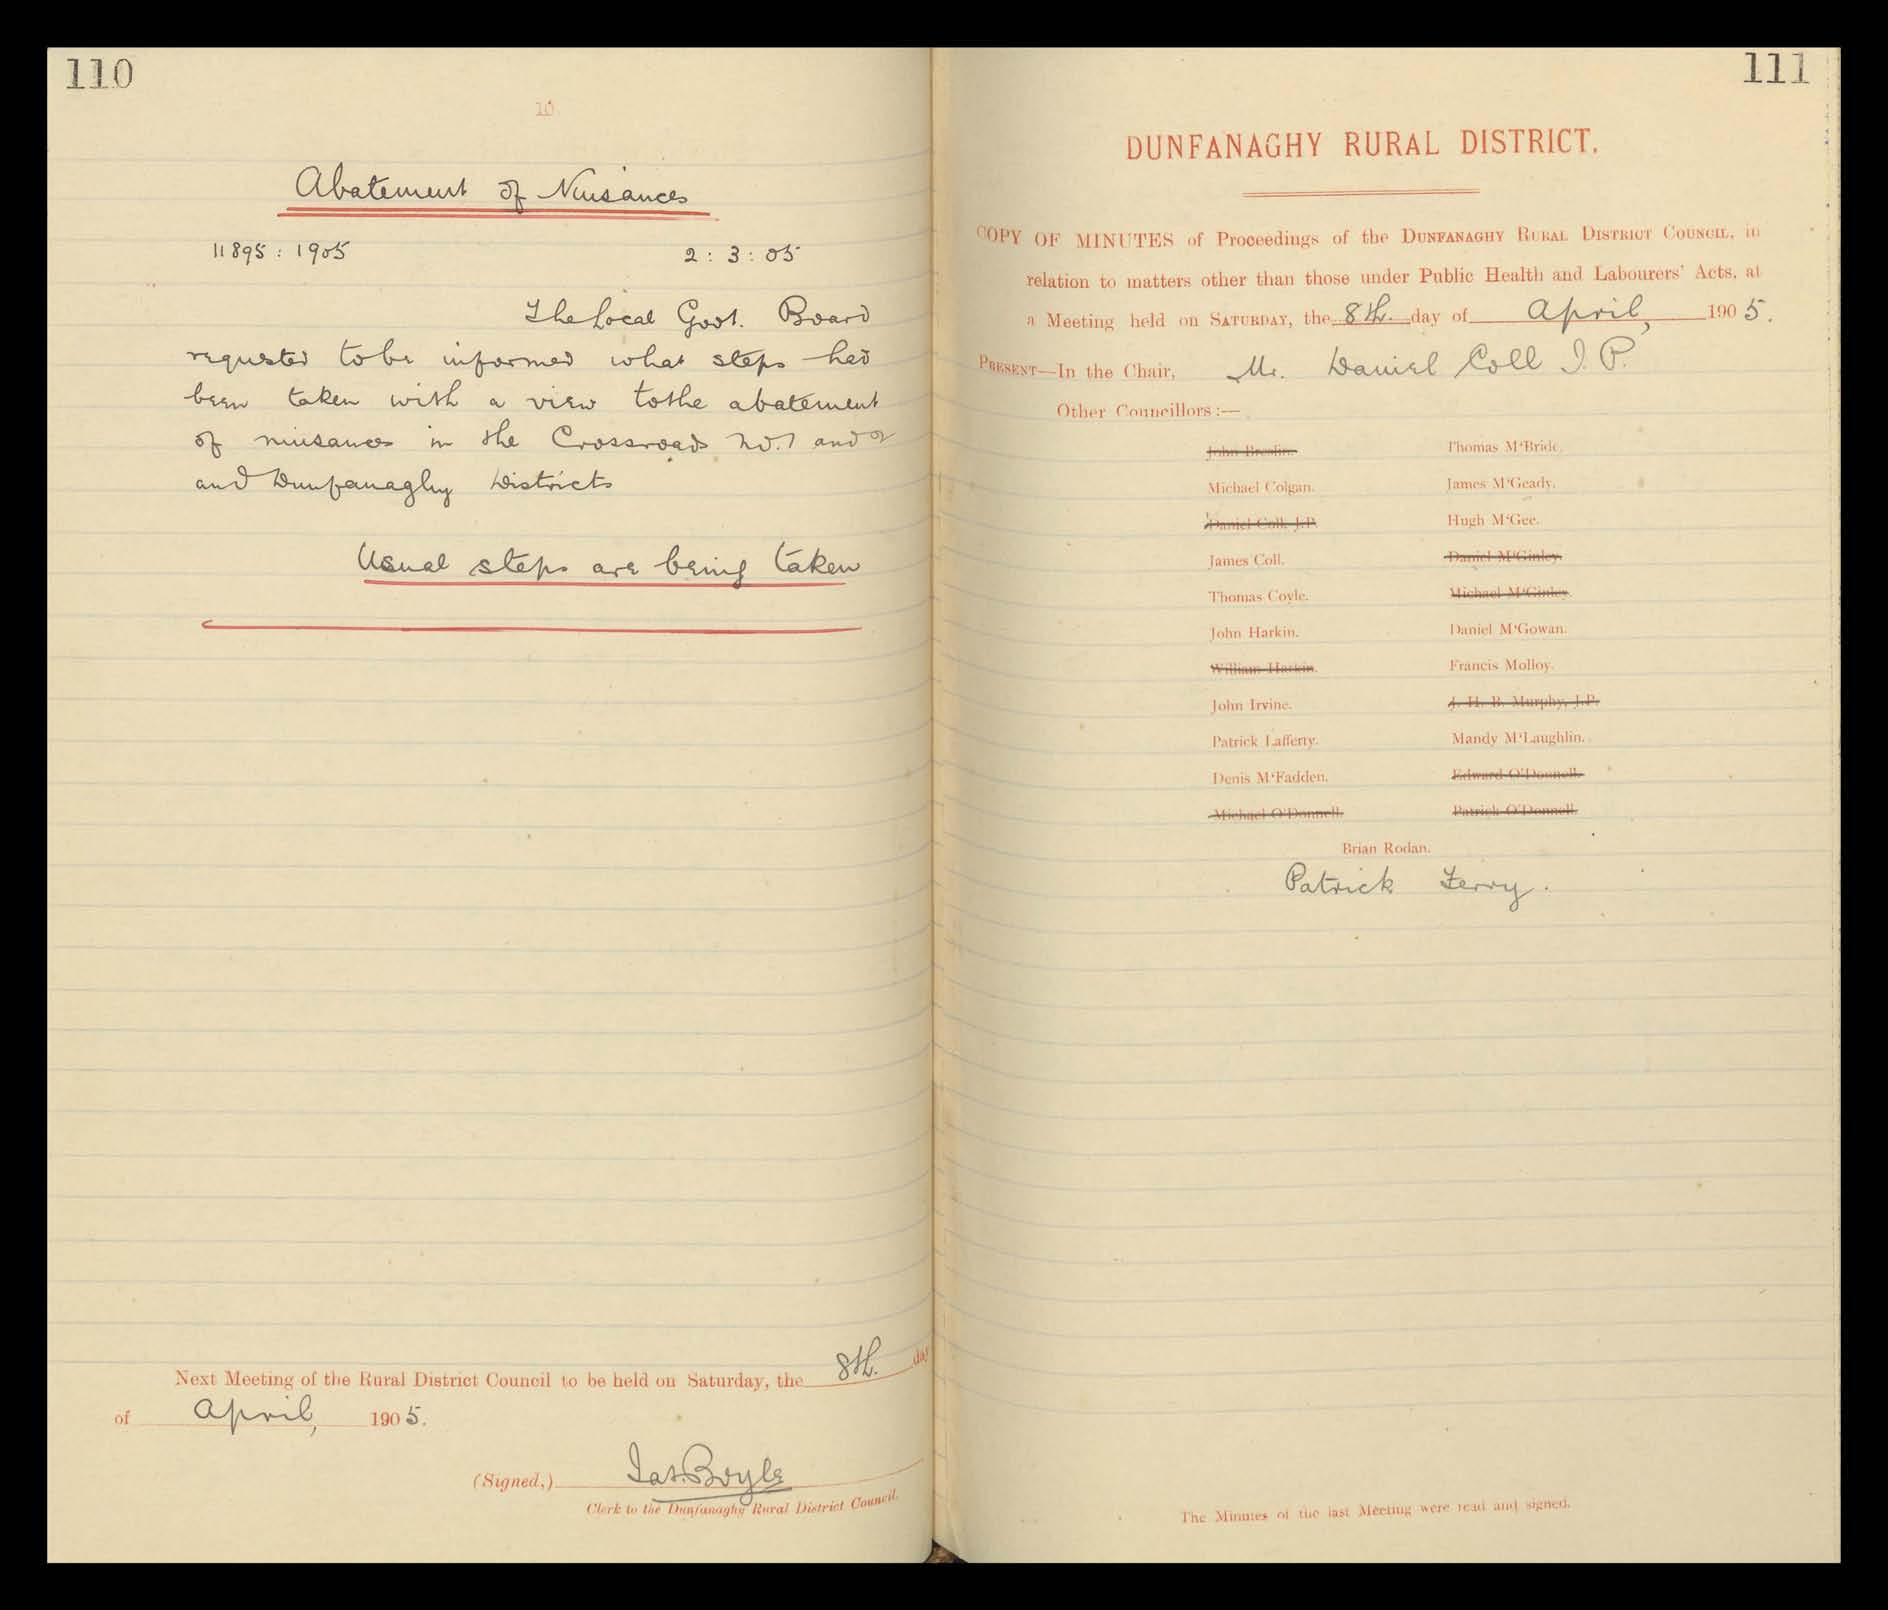 110
10
Abatement of Nuisances
11895 : 1905 2 : 3 : 05
The Local Govt. Board
requested to be informed what steps had
been taken with a view to the abatement
of nuisances in the Crossroads No. 1 and 2
and Dunfanaghy Districts
Usual steps are being taken
Next Meeting of the Rural District Council to be held on Saturday, the 8th. day
of April, 1905.
(Signed,) Jas. Boyle
Clerk to the Dunfanaghy Rural District Council.
111
DUNFANAGHY RURAL DISTRICT.
COPY OF MINUTES of Proceedings of the DUNFANAGHY RURAL DISTRICT COUNCIL, in
relation to matters other than those under Public Health and Labourers' Acts, at
a Meeting held on SATURDAY, the 8th. day of April, 1905.
PRESENT—In the Chair, Mr. Daniel Coll J. P.
Other Councillors :—
John Breslin. Thomas M'Bride.
Michael Colgan. James M'Geady.
Daniel Coll, J.P. Hugh M'Gee.
James Coll. Daniel M'Ginley.
Thomas Coyle. Michael M'Ginley.
John Harkin. Daniel M'Gowan.
William Harkin. Francis Molloy.
John Irvine. J. H. B. Murphy, J.P.
Patrick Lafferty. Mandy M'Laughlin.
Denis M'Fadden. Edward O'Donnell.
Michael O'Donnell. Patrick O'Donnell.
Brian Rodan.
Patrick Ferry.
The Minutes of the last Meeting were read and signed.